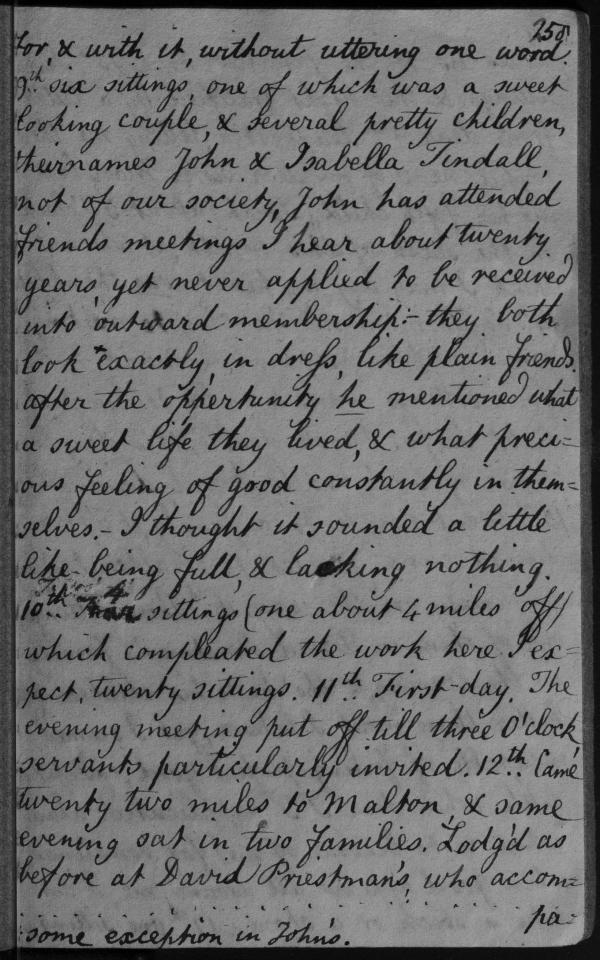 258
for, & with it, without uttering one word.
9th six sittings, one of which was a sweet
looking couple, & several pretty children,
their names John & Isabella Tindall,
not of our society, John has attended
friends meetings I hear about twenty
years, yet never applied to be received
into outward membership:- they both
look +exactly, in dress, like plain friends.
after the oppertunity he mentioned what
a sweet life they lived, & what preci=
ous feeling of good constantly in them=
selves.- I thought it sounded a little
like being full, & lacking nothing.
10th 4 sittings (one about 4 miles off)
which compleated the work here I ex=
pect, twenty sittings. 11th First-day. The
evening meeting put off till three O'clock,
servants particularly invited. 12th Came
twenty two miles to Malton, & same
evening sat in two families. Lodg'd as
before at David Priestman's, who accom=
pa-
some exception in John's.